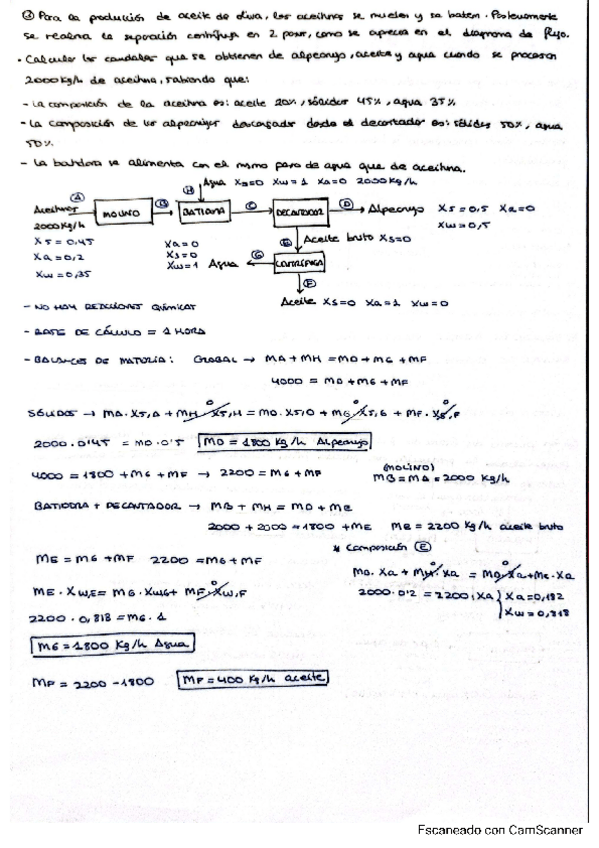 ③ Para la producción de aceite de oliva, las aceitunas se muelen y se baten. Posteriormente
se realiza la separación centrífuga en 2 pasos, como se aprecia en el diagrama de flujo.
• Calcular los caudales que se obtienen de alpeorujo, aceite y agua cuando se procesan
2000 kg/h de aceituna, sabiendo que:
- La composición de la aceituna es: aceite 20%, sólidos 45%, agua 35%
- La composición de los alpeorujos descargados desde el decantador es: sólidos 50%, agua
50%.
- La batidora se alimenta con el mismo peso de agua que de aceituna.
Ⓗ Agua Xs=0 Xw=1 Xa=0 2000 kg/h
Ⓐ Aceitunas 2000 kg/h
Xs=0,45
Xa=0,2
Xw=0,35
MOLINO
Ⓑ
BATIDORA
Ⓒ
DECANTADOR
Ⓓ Alpeorujo Xs=0,5 Xa=0
Xw=0,5
Ⓔ Aceite bruto Xs=0
Xa=0
Xs=0
Xw=1 Agua Ⓖ CENTRÍFUGA
Ⓕ
Aceite Xs=0 Xa=1 Xw=0
- NO HAY REACCIONES QUÍMICAS
- BASE DE CÁLCULO = 1 HORA
- BALANCES DE MATERIA: GLOBAL → MA + MH = MD + MG + MF
4000 = MD + MG + MF
SÓLIDOS → MA · XS,A + MH · XS,H = MD · XS,D + MG · XS,G + MF · XS,F
2000 · 0'45 = MD · 0'5 MD = 1800 kg/h Alpeorujo
4000 = 1800 + MG + MF → 2200 = MG + MF
(MOLINO)
MB = MA = 2000 kg/h
BATIDORA + DECANTADOR → MB + MH = MD + ME
2000 + 2000 = 1800 + ME ME = 2200 kg/h aceite bruto
* Composición Ⓔ
ME = MG + MF 2200 = MG + MF
MB · Xa + MH · Xa = MD · Xa + ME · Xa
2000 · 0'2 = 2200 · Xa } Xa = 0,182
Xw = 0,818
ME · XW,E = MG · XW,G + MF · XW,F
2200 · 0,818 = MG · 1
MG = 1800 kg/h Agua
MF = 2200 - 1800 MF = 400 kg/h aceite
Escaneado con CamScanner